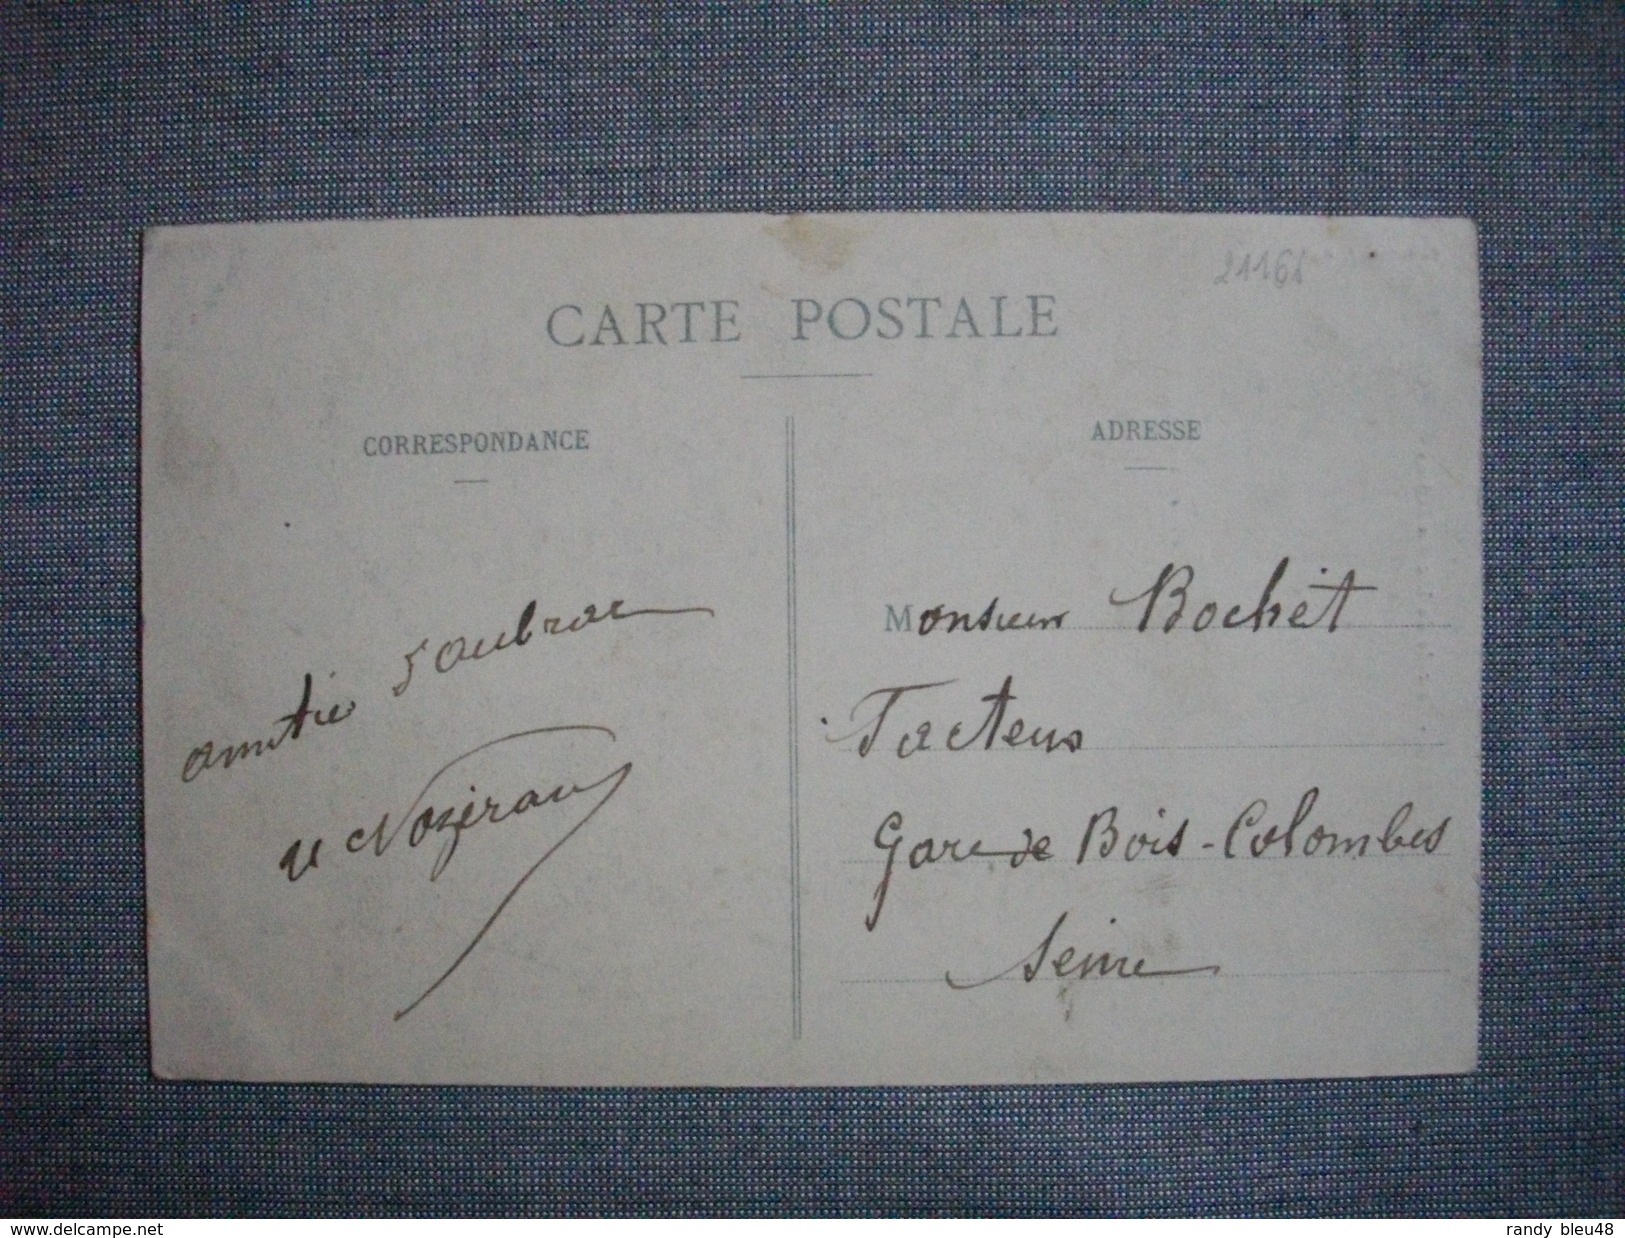 21161
CARTE POSTALE
CORRESPONDANCE
amitié d'Aubrac
Nozeran
ADRESSE
Monsieur Bochet
Facteur
Gare de Bois-Colombes
Seine
www.delcampe.net
randy_bleu48